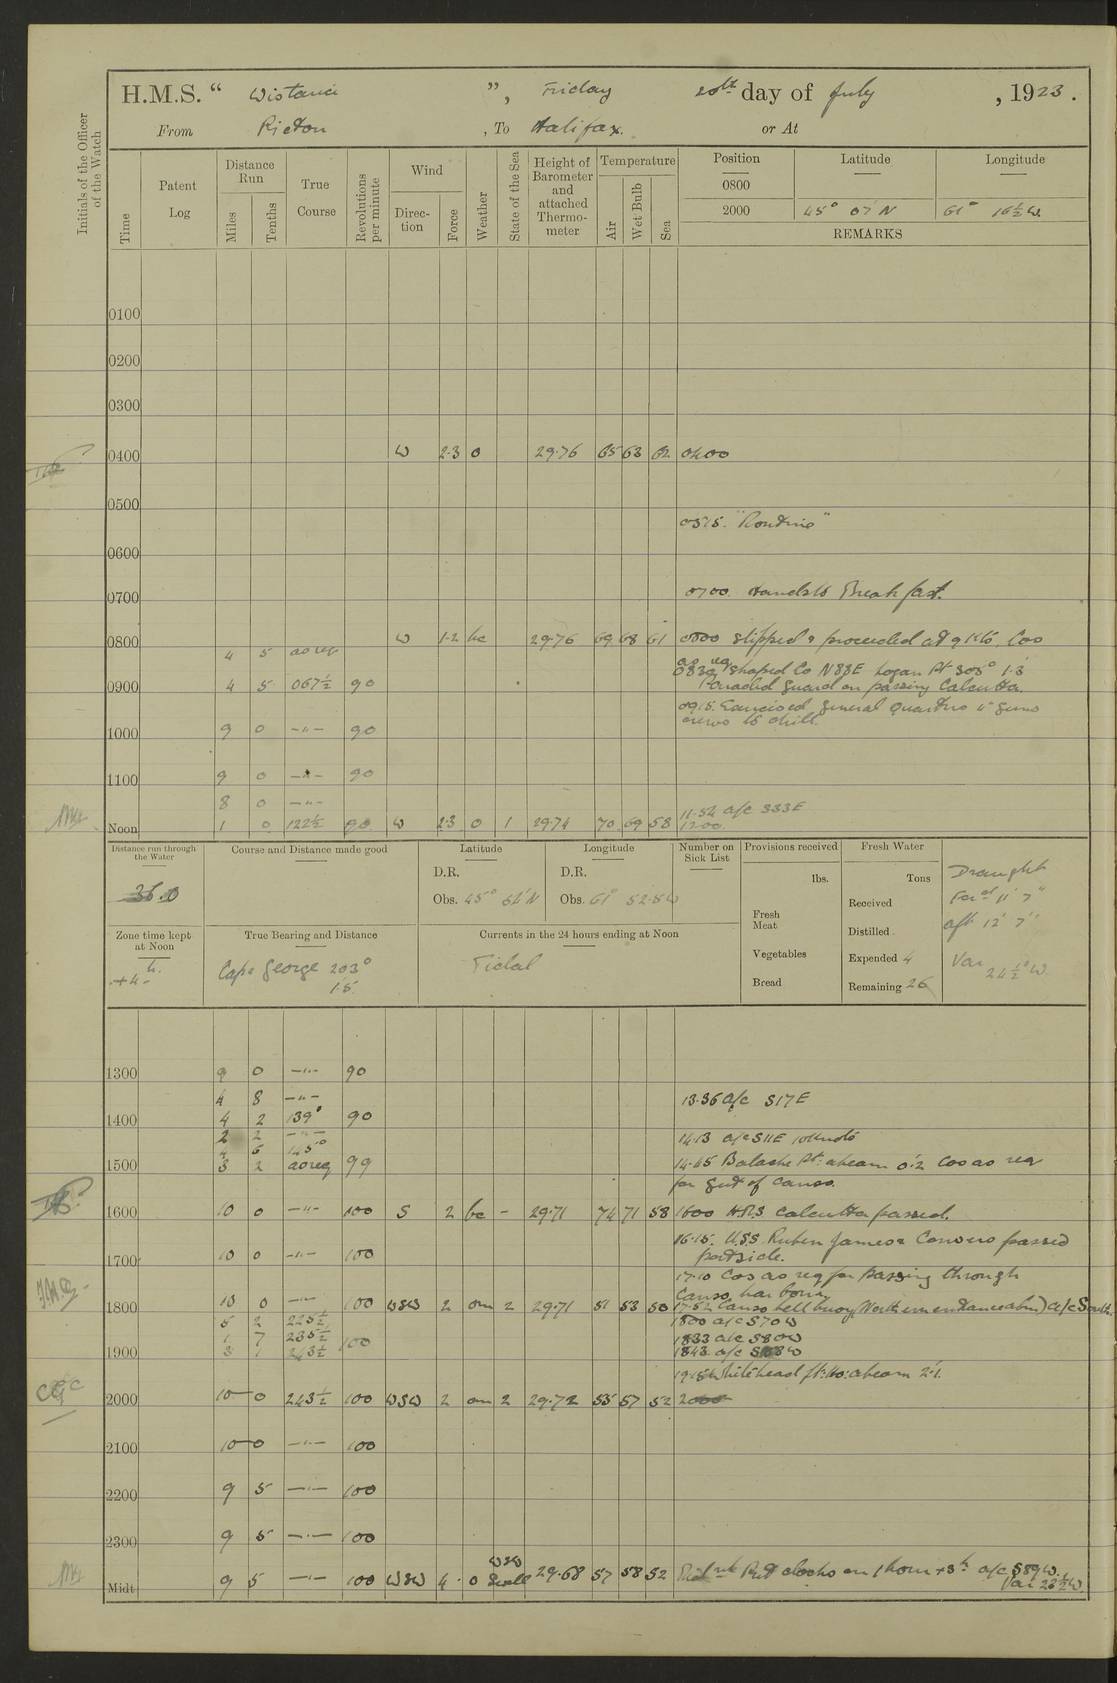 H.M.S. “ Wistaria ”, Friday 20th day of July, 1923.
From Pictou, To Halifax. or At
Initials of the Officer of the Watch
Time
Patent Log
Distance Run
Miles
Tenths
True Course
Revolutions per minute
Wind
Direction
Force
Weather
State of the Sea
Height of Barometer and attached Thermometer
Temperature
Air
Wet Bulb
Sea
Position Latitude Longitude
0800
2000 45° 07' N 61° 16½ W.
REMARKS
0100
0200
0300
0400 W 2·3 o 29·76 65 63 62 0400
0500
0515. "Routine"
0600
0700
0700. Hands to Breakfast.
0800 W 1·2 bc 29·76 69 68 61 0800 Slipped & proceeded at 9 kts. Cos
4 5 as req
as req
0830 shaped Co N83E Logan Pt 305° 1·3
0900 4 5 067½ 90 Paraded Guard on passing Calcutta.
0915. Exercised General Quarters & guns
crews to drill.
1000 9 0 —"— 90
1100 9 0 —"— 90
8 0 —"—
11·52 a/c S33E
Noon 1 0 122½ 90 W 2·3 o 1 29·74 70 69 58 1200.
Distance run through the Water
36.0
Course and Distance made good
Latitude
D.R.
Obs. 45° 52' N
Longitude
D.R.
Obs. 61° 52·8W
Number on Sick List
Provisions received
lbs.
Fresh Meat
Vegetables
Bread
Fresh Water
Tons
Received
Distilled
Expended 4
Remaining 26
Draught
For'd 11' 7"
Aft 12' 7"
Var 24½° W.
Zone time kept at Noon
+4
True Bearing and Distance
Cape George 203°
1·5.
Currents in the 24 hours ending at Noon
Tidal
1300 9 0 —"— 90
4 8 —"— 13·36 a/c S17E
1400 4 2 139° 90
2 2 —"— 14·13 a/c S11E 10 knots
4 6 145°
1500 3 2 as req 99 14·45 Balache Pt: abeam 0'.2 Cos as req
for Gut of Canso.
1600 10 0 —"— 100 S 2 bc - 29·71 74 71 58 1600 H.M.S. Calcutta passed.
16·15. U.S.S. Ruben James & Convers passed
portside.
1700 10 0 —"— 100
17·10 Cos as req for passing through
Canso harbour
1800 10 0 —"— 100 WSW 2 om 2 29·71 51 53 50 17·52 Canso bell buoy (Northern entrance abm) a/c South.
5 2 225½ 1800 a/c S70W
1 7 235½ 100 1833 a/c S80W
1900 3 1 243½ 1843 a/c S88W
19·54 Whitehead Lt: Ho: abeam 2'.1.
2000 10 0 243½ 100 WSW 2 om 2 29·72 55 57 52 2000
2100 10 0 —"— 100
2200 9 5 —"— 100
2300 9 5 —"— 100
WSW
Midt 9 5 —"— 100 WSW 4 o Swell 29·68 57 58 52 Midnt Put clocks on 1 hour +3h a/c S89W.
Var 23½W.